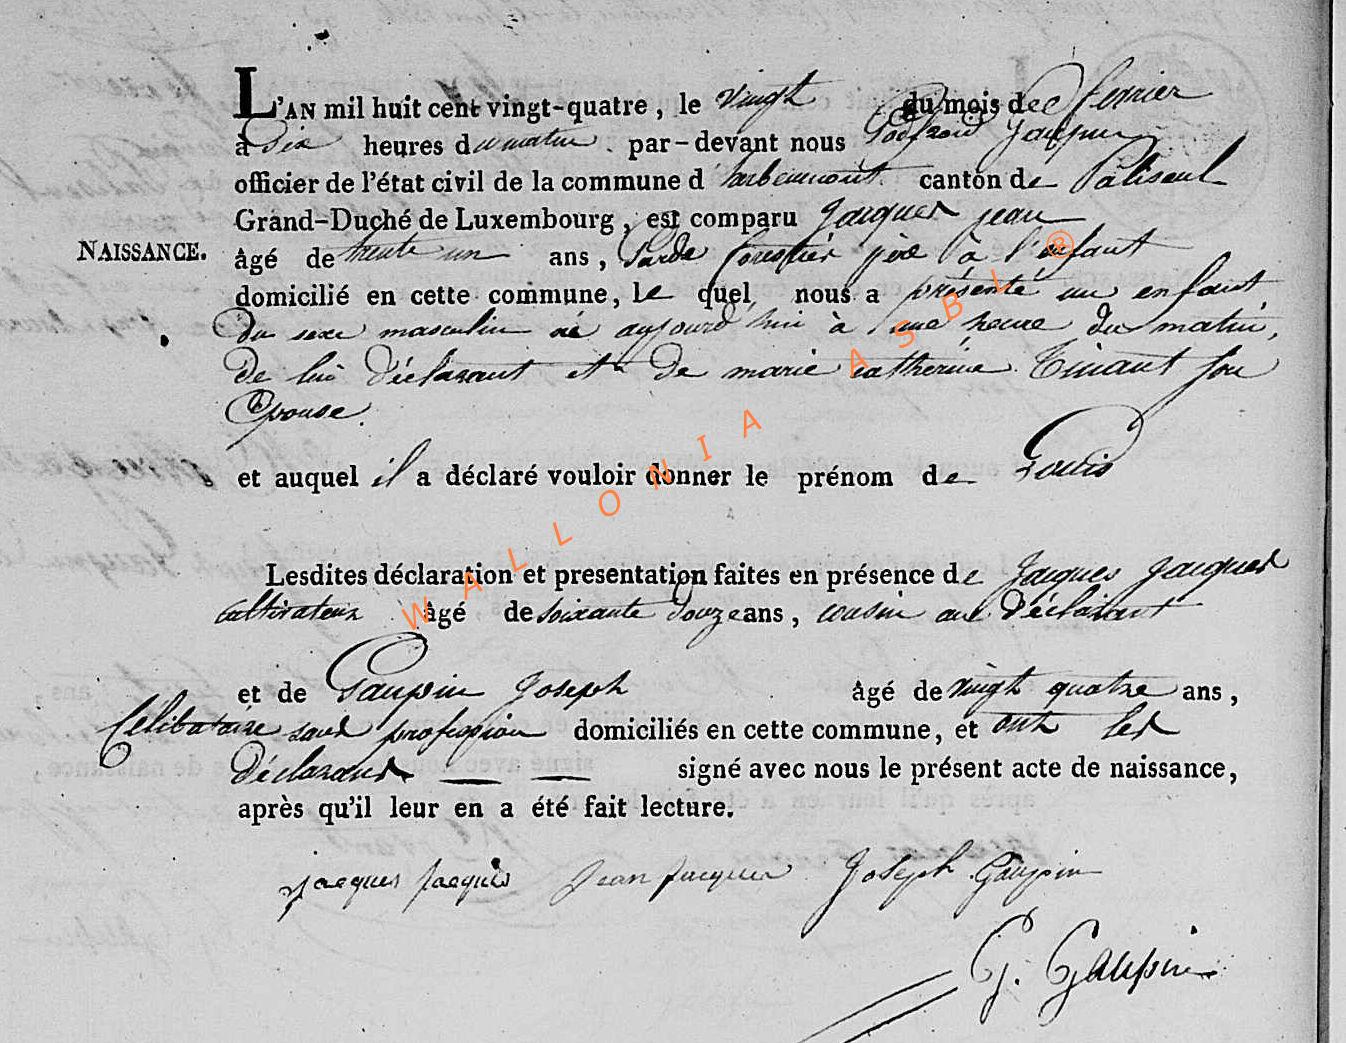 L'AN mil huit cent vingt-quatre, le vingt du mois de fevrier
à Six heures du matin par-devant nous Godfroid Gaupin
officier de l'état civil de la commune d'herbeumont canton de Paliseul
Grand-Duché de Luxembourg, est comparu Jacques jean
NAISSANCE. âgé de trente un ans, Garde forestier père à l'enfant
domicilié en cette commune, le quel nous a présenté un enfant
du sexe masculin né aujourd'hui à une heure du matin,
de lui déclarant et de marie catherine Tinant son
Epouse.
et auquel il a déclaré vouloir donner le prénom de Louis
Lesdites déclaration et presentation faites en présence de Jacques Jacques
cultivateur âgé de soixante douze ans, cousin au déclarant
et de Gaupin Joseph âgé de vingt quatre ans,
Célibataire sans profession domiciliés en cette commune, et ont les
déclarants signé avec nous le présent acte de naissance,
après qu'il leur en a été fait lecture.
jacques jacques Jean Jacques Joseph Gaupin
G. Gaupin
WALLONIA ASBL ®